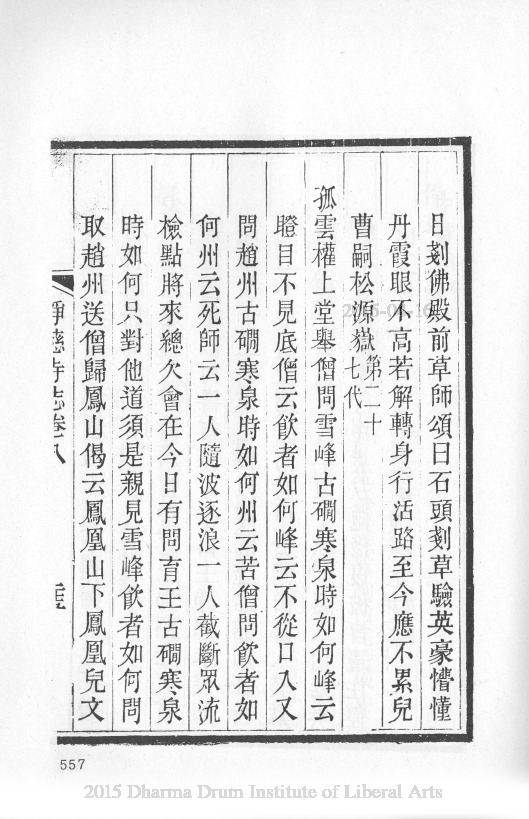 日剗佛殿前草師頌曰石頭剗草驗英豪懵懂
丹霞眼不高若解轉身行活路至今應不累兒
曹嗣松源嶽第二十七代
孤雲權上堂舉僧問雪峰古磵寒泉時如何峰云
瞪目不見底僧云飲者如何峰云不從口入又
問趙州古磵寒泉時如何州云苦僧問飲者如
何州云死師云一人隨波逐浪一人截斷眾流
檢點將來總欠會在今日有問育王古磵寒泉
時如何只對他道須是親見雪峰飲者如何問
取趙州送僧歸鳳山偈云鳳凰山下鳳凰兒文
淨慈寺志卷八
557
2015 Dharma Drum Institute of Liberal Arts